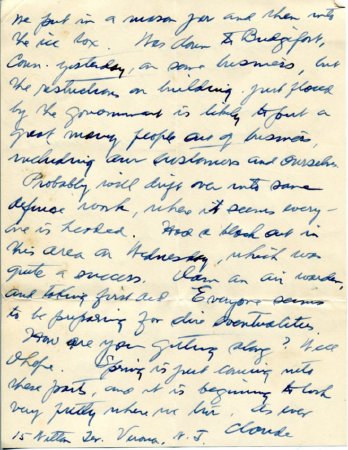 we put in a mason jar and then into
the ice box. Was down to Bridgeport,
Conn. yesterday, on some business, but
the restrictions on building just placed
by the government is likely to put a
great many people out of business,
including our customers and ourselves.
Probably will drift over into some
defense work, where it seems every-
one is headed. Had a black out in
this area on Wednesday, which was
quite a success. I am an air warden,
and taking first aid. Everyone seems
to be preparing for dire eventualities.
How are you getting along? Well
I hope. Spring is just coming into
these parts, and it is beginning to look
very pretty where we live. As ever
Claude
15 Wilton Ter. Verona, N. J.